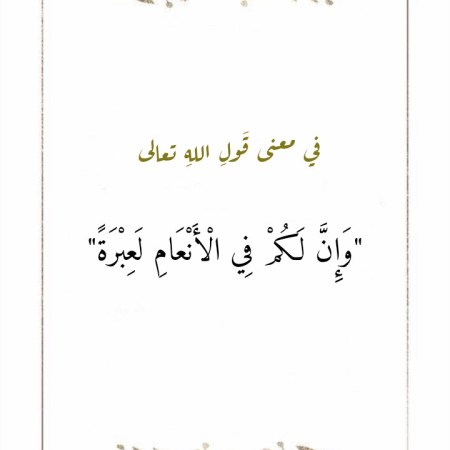 في معنى قَولِ اللهِ تعالى
"وَإِنَّ لَكُمْ فِي الْأَنْعَامِ لَعِبْرَةً"